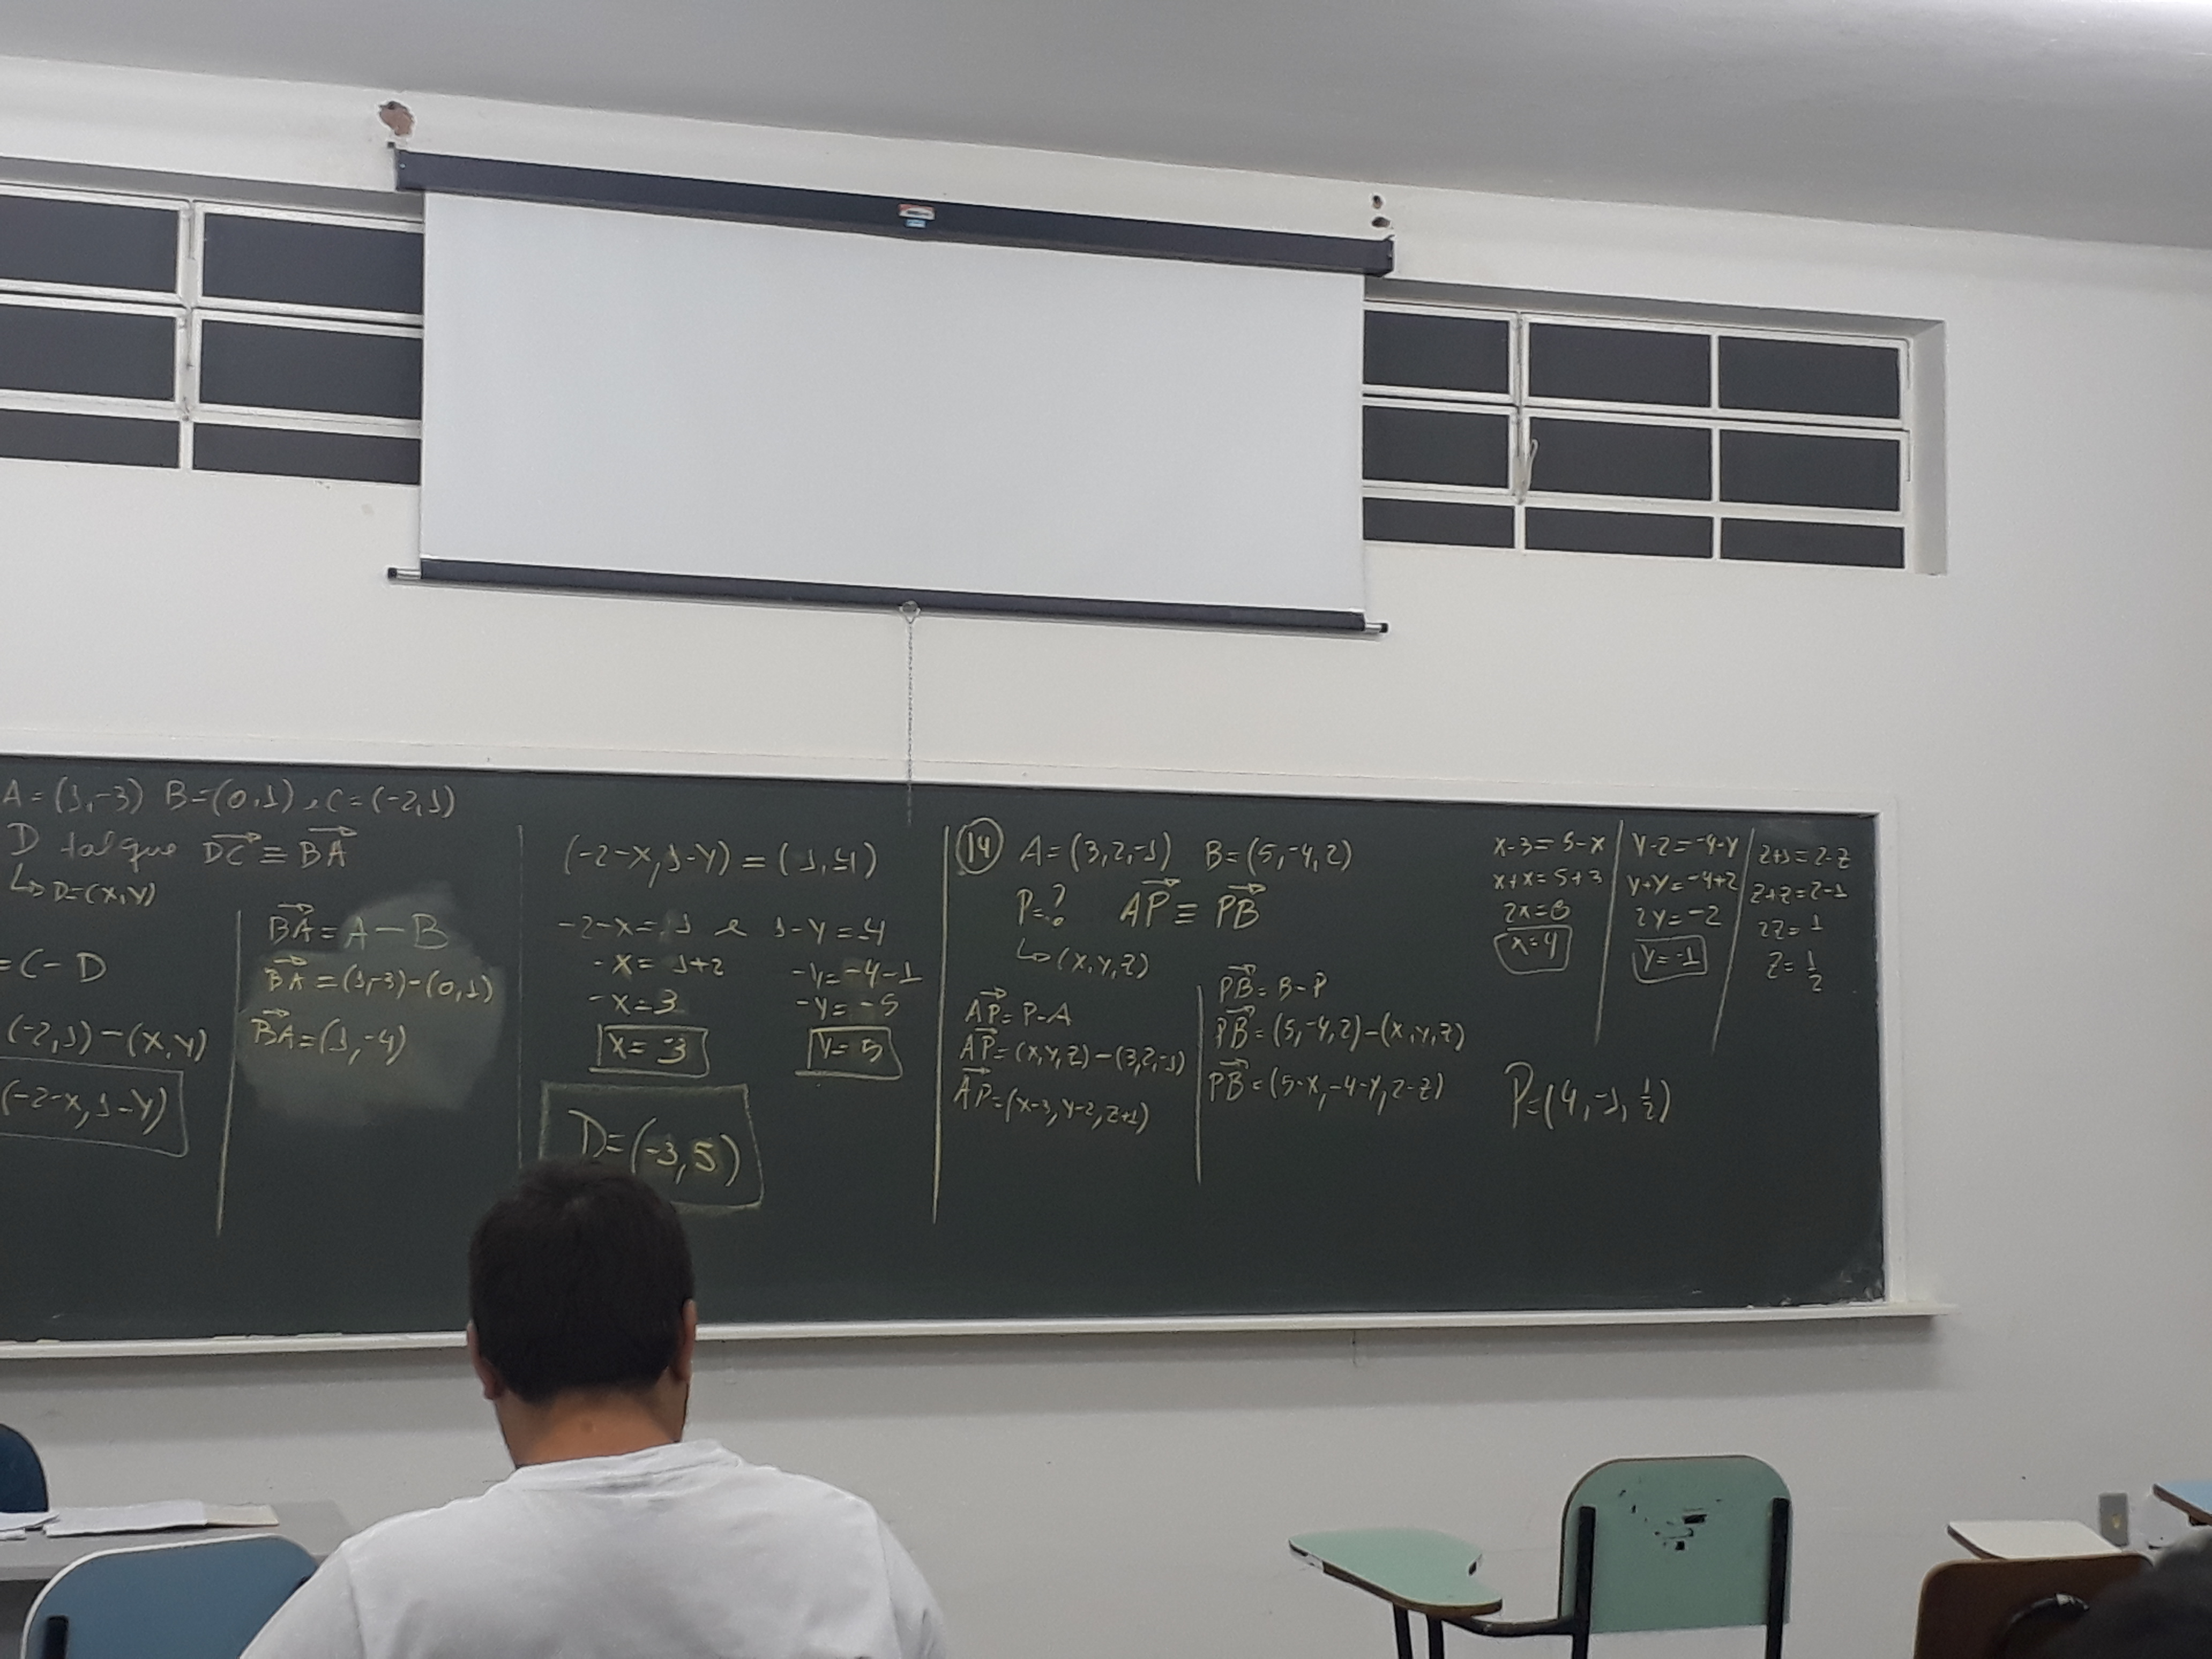 A = (1,-3) B = (0,1) , C = (-2,1)
D tal que DC ≡ BA
↳ D = (x,y)
= C - D
(-2,1) - (x,y)
(-2-x, 1-y)
BA = A - B
BA = (1,-3) - (0,1)
BA = (1,-4)
(-2-x, 1-y) = (1,-4)
-2-x = 1 e 1-y = -4
-x = 1+2
-x = 3
x = -3
-y = -4-1
-y = -5
y = 5
D = (-3,5)
14 A = (3,2,-1) B = (5,-4,2)
P = ? AP ≡ PB
↳ (x,y,z)
AP = P - A
AP = (x,y,z) - (3,2,-1)
AP = (x-3, y-2, z+1)
PB = B - P
PB = (5,-4,2) - (x,y,z)
PB = (5-x, -4-y, 2-z)
x-3 = 5-x
x+x = 5+3
2x = 8
x = 4
y-2 = -4-y
y+y = -4+2
2y = -2
y = -1
z+1 = 2-z
z+z = 2-1
2z = 1
z = 1/2
P = (4,-1,1/2)